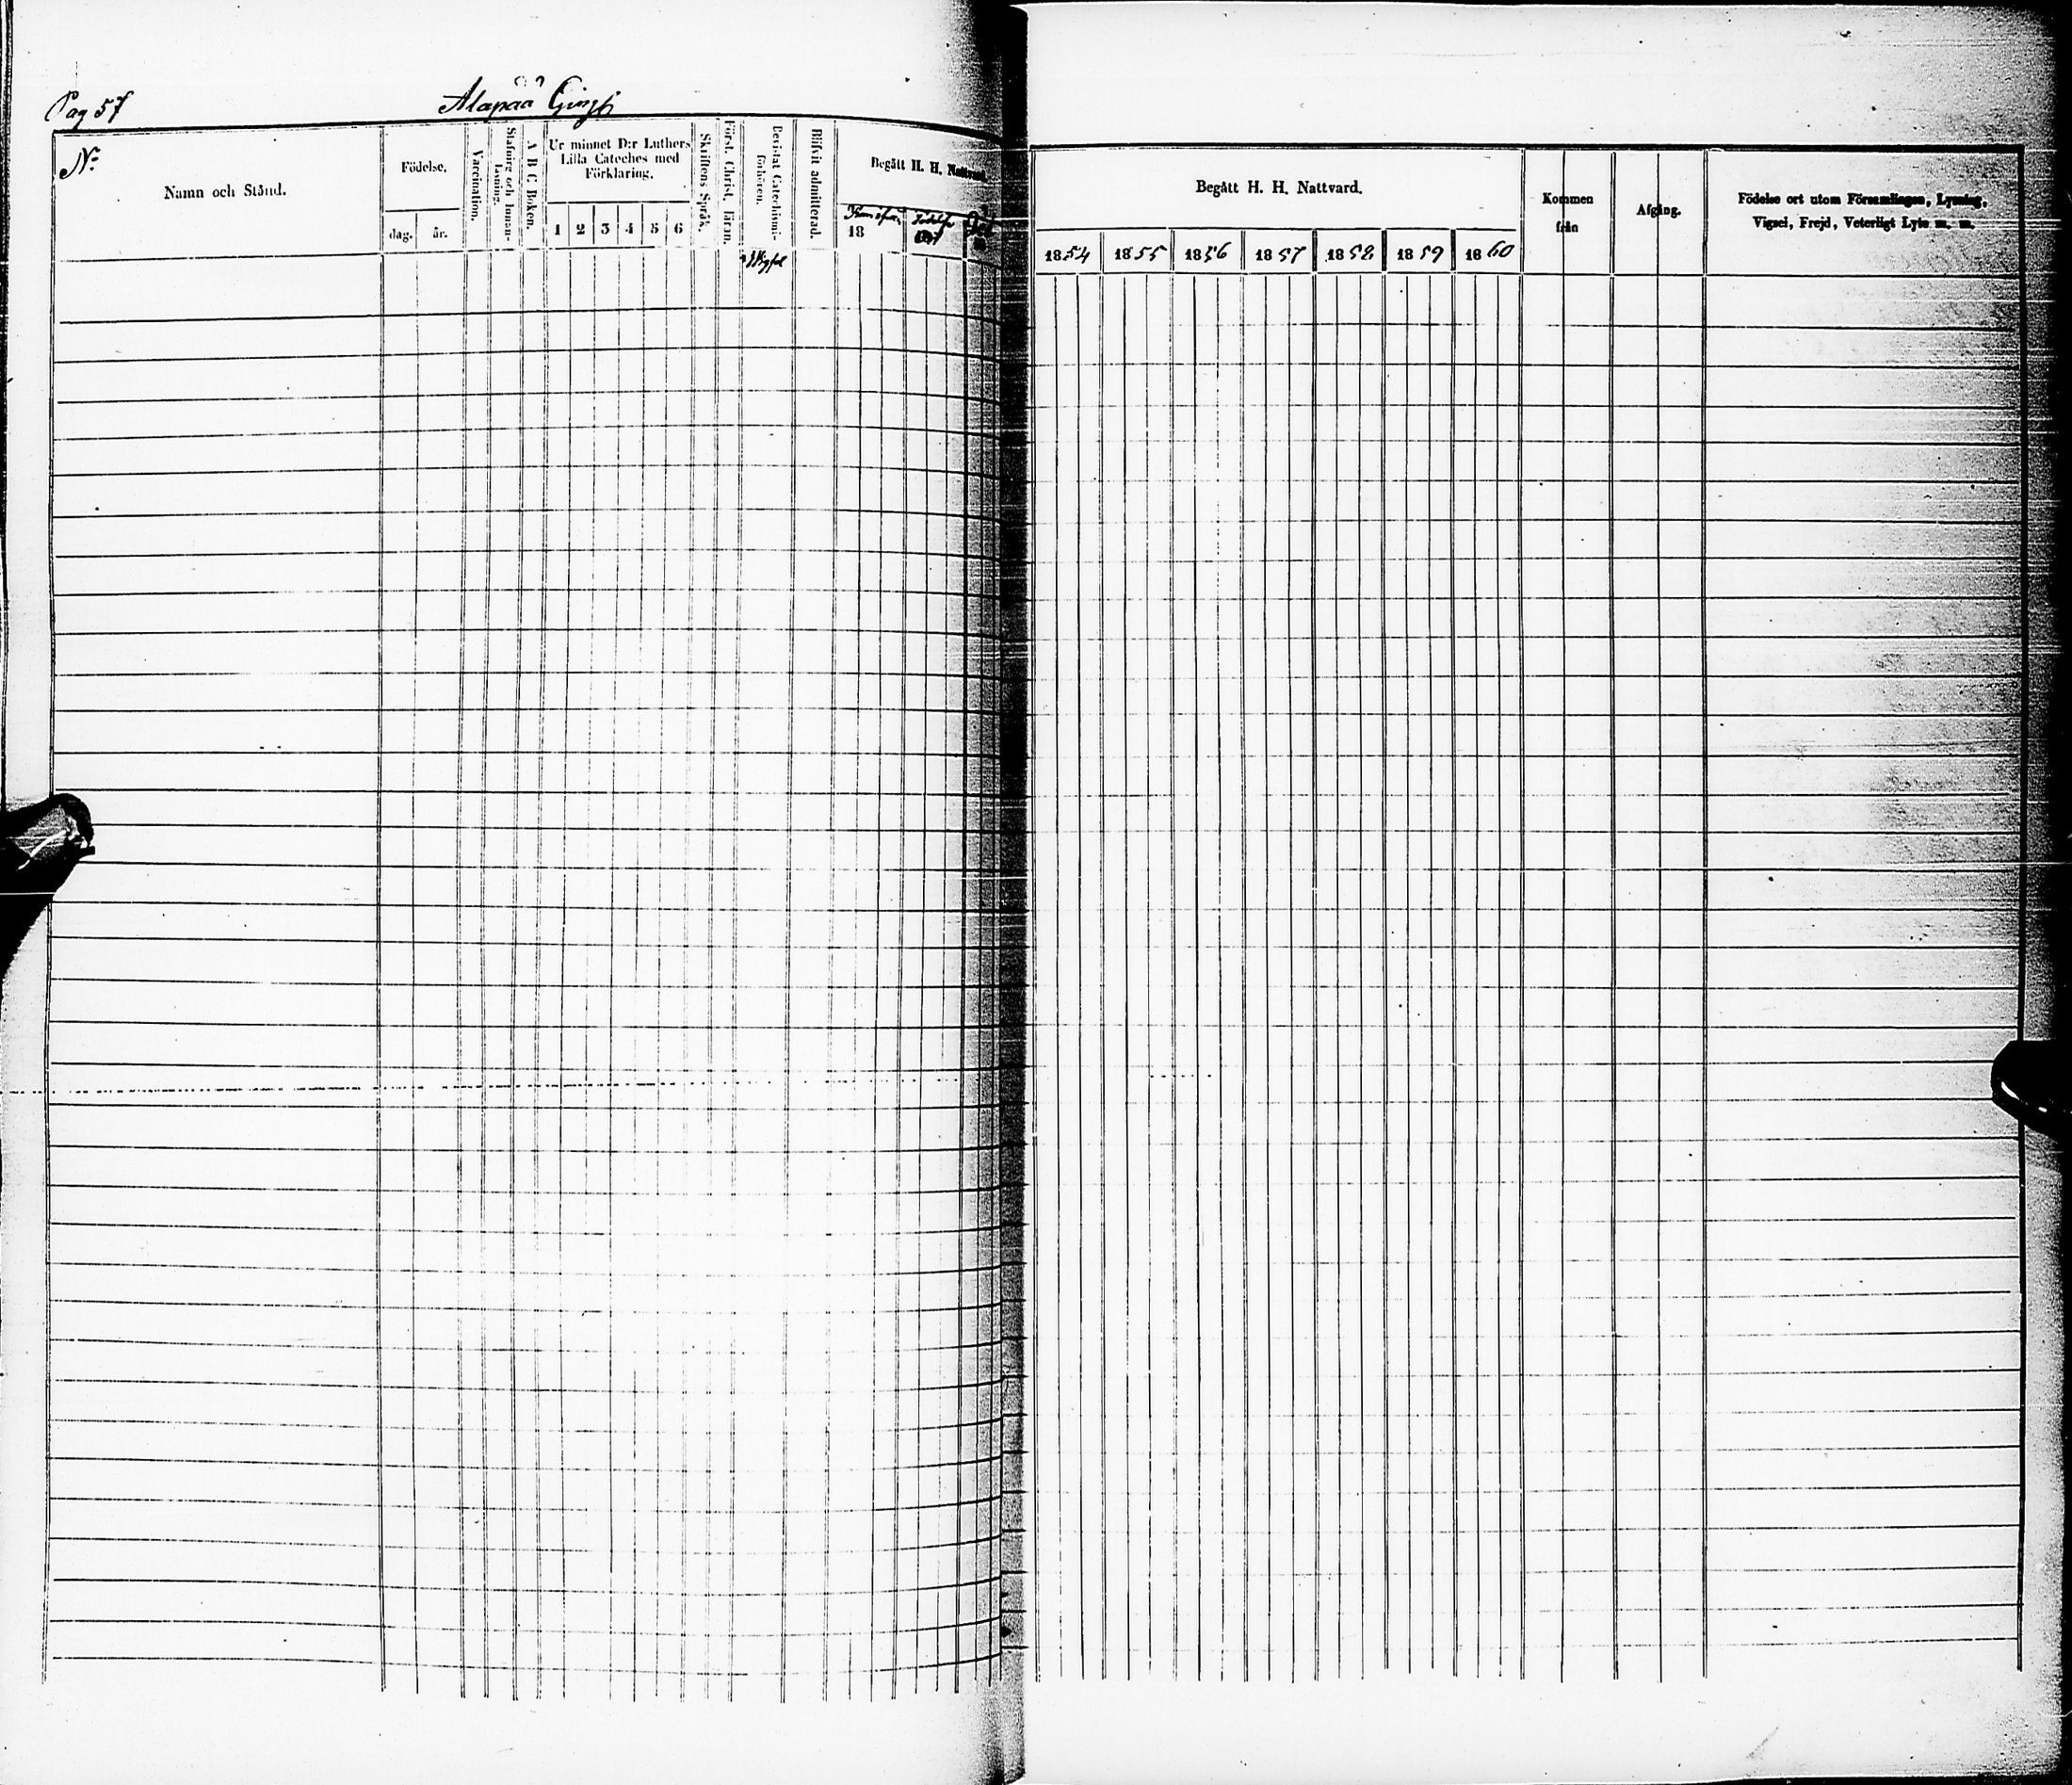 Pag 57
Alapää
No
Namn och Stånd.
Födelse.
dag. år.
Vaccination.
Stafning och Innan-
läsning.
A B C Boken.
Ur minnet D:r Luthers
Lilla Cateches med
Förklaring.
1 2 3 4 5 6
Skriftens Språk.
Först. Christ. läran.
Bevistat Catechismi-
förhören.
Blifvit admitterad.
Begått H. H. Nattvard.
18
Begått H. H. Nattvard.
1854 1855 1856 1857 1858 1859 1860
Kommen
från
Afgång.
Födelse ort utom Församlingen, Lysning,
Vigsel, Frejd, Veterligt Lyte m. m.